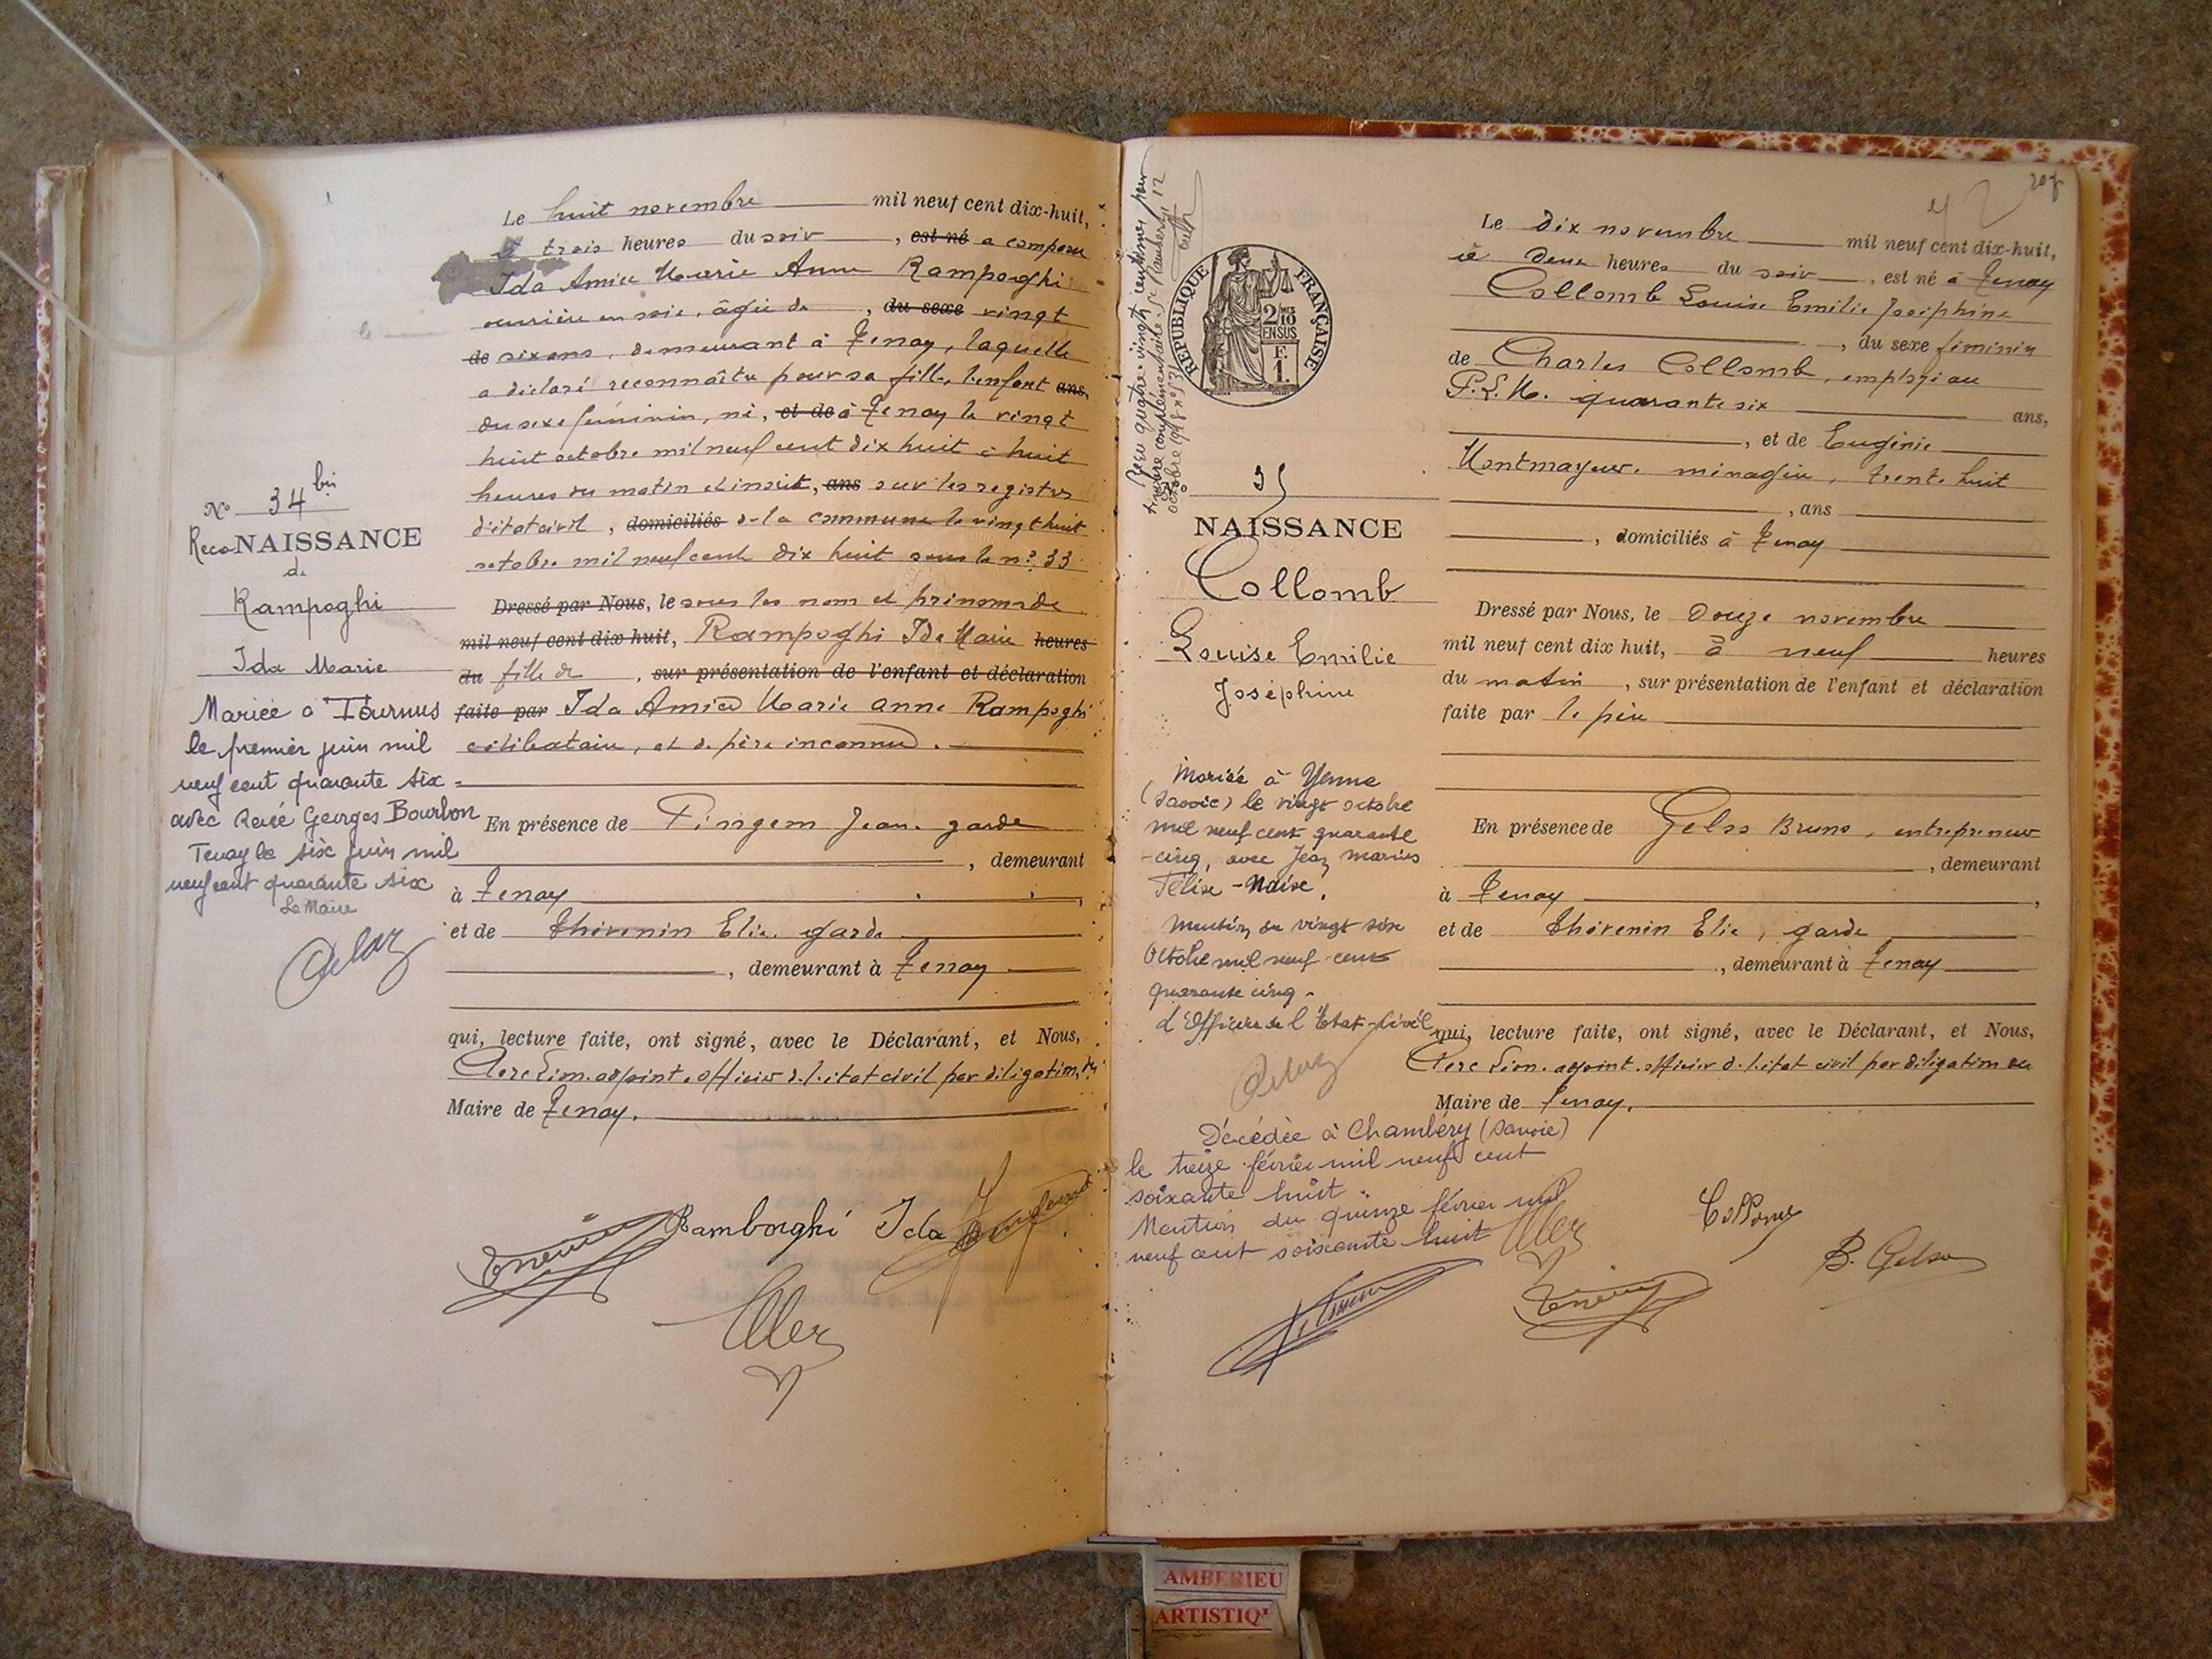 Le huit novembre mil neuf cent dix-huit,
à trois heures du soir, est né a comparu
Ida Amice Marie Anne Rampoghi
ouvrière en soie, âgée de, du sexe vingt
de six ans, demeurant à Tenay, laquelle
a déclaré reconnaître pour sa fille, l'enfant ans,
du sexe féminin, né, et de à Tenay le vingt
huit octobre mil neuf cent dix huit à huit
heures du matin et inscrit, ans sur les registres
d'état civil, domiciliés de la commune le vingt huit
octobre mil neuf cent dix huit sous le n° 33
Dressé par Nous, le sous les nom et prénoms de
mil neuf cent dix huit, Rampoghi Ida Marie heures
du fille de, sur présentation de l'enfant et déclaration
faite par Ida Amice Marie Anne Rampoghi
célibataire, et de père inconnu.
En présence de Pingeon Jean, garde
, demeurant
à Tenay
et de Thévenin Elie, garde
, demeurant à Tenay
qui, lecture faite, ont signé, avec le Déclarant, et Nous,
Clerc Léon, adjoint, officier de l'état civil par délégation du
Maire de Tenay.
Ramborghi Ida
N° 34 bis
Reco NAISSANCE
de
Rampoghi
Ida Marie
Mariée à Tournus
le premier juin mil
neuf cent quarante six
avec René Georges Bourbon
Tenay le six juin mil
neuf cent quarante six
Le Maire
207
Le dix novembre mil neuf cent dix-huit,
à deux heures du soir, est né à Tenay
Collomb Louise Emilie Joséphine
, du sexe féminin
de Charles Collomb, employé au
P.L.M. quarante six ans,
, et de Eugénie
Montmayeur, ménagère, trente huit
, ans
, domiciliés à Tenay
Dressé par Nous, le douze novembre
mil neuf cent dix huit, à neuf heures
du matin, sur présentation de l'enfant et déclaration
faite par le père
En présence de Gelso Bruno, entrepreneur
, demeurant
à Tenay
et de Thévenin Elie, garde
, demeurant à Tenay
qui, lecture faite, ont signé, avec le Déclarant, et Nous,
Clerc Léon, adjoint, officier de l'état civil par délégation du
Maire de Tenay.
Collomb
B. Gelso
Reçu quatre-vingts centimes pour
timbre complémentaire
octobre 1918 n° 31
RÉPUBLIQUE FRANÇAISE
2/10 EN SUS
1 F.
N° 35
NAISSANCE
Collomb
Louise Emilie
Joséphine
Mariée à Yenne
(Savoie) le vingt octobre
mil neuf cent quarante
-cinq, avec Jean Marius
Félise-Naise.
Mention du vingt six
Octobre mil neuf cent
quarante cinq.
L'Officier de l'Etat-Civil
Décédée à Chambéry (Savoie)
le treize février mil neuf cent
soixante huit.
Mention du quinze février mil
neuf cent soixante huit
AMBERIEU
ARTISTIQ'